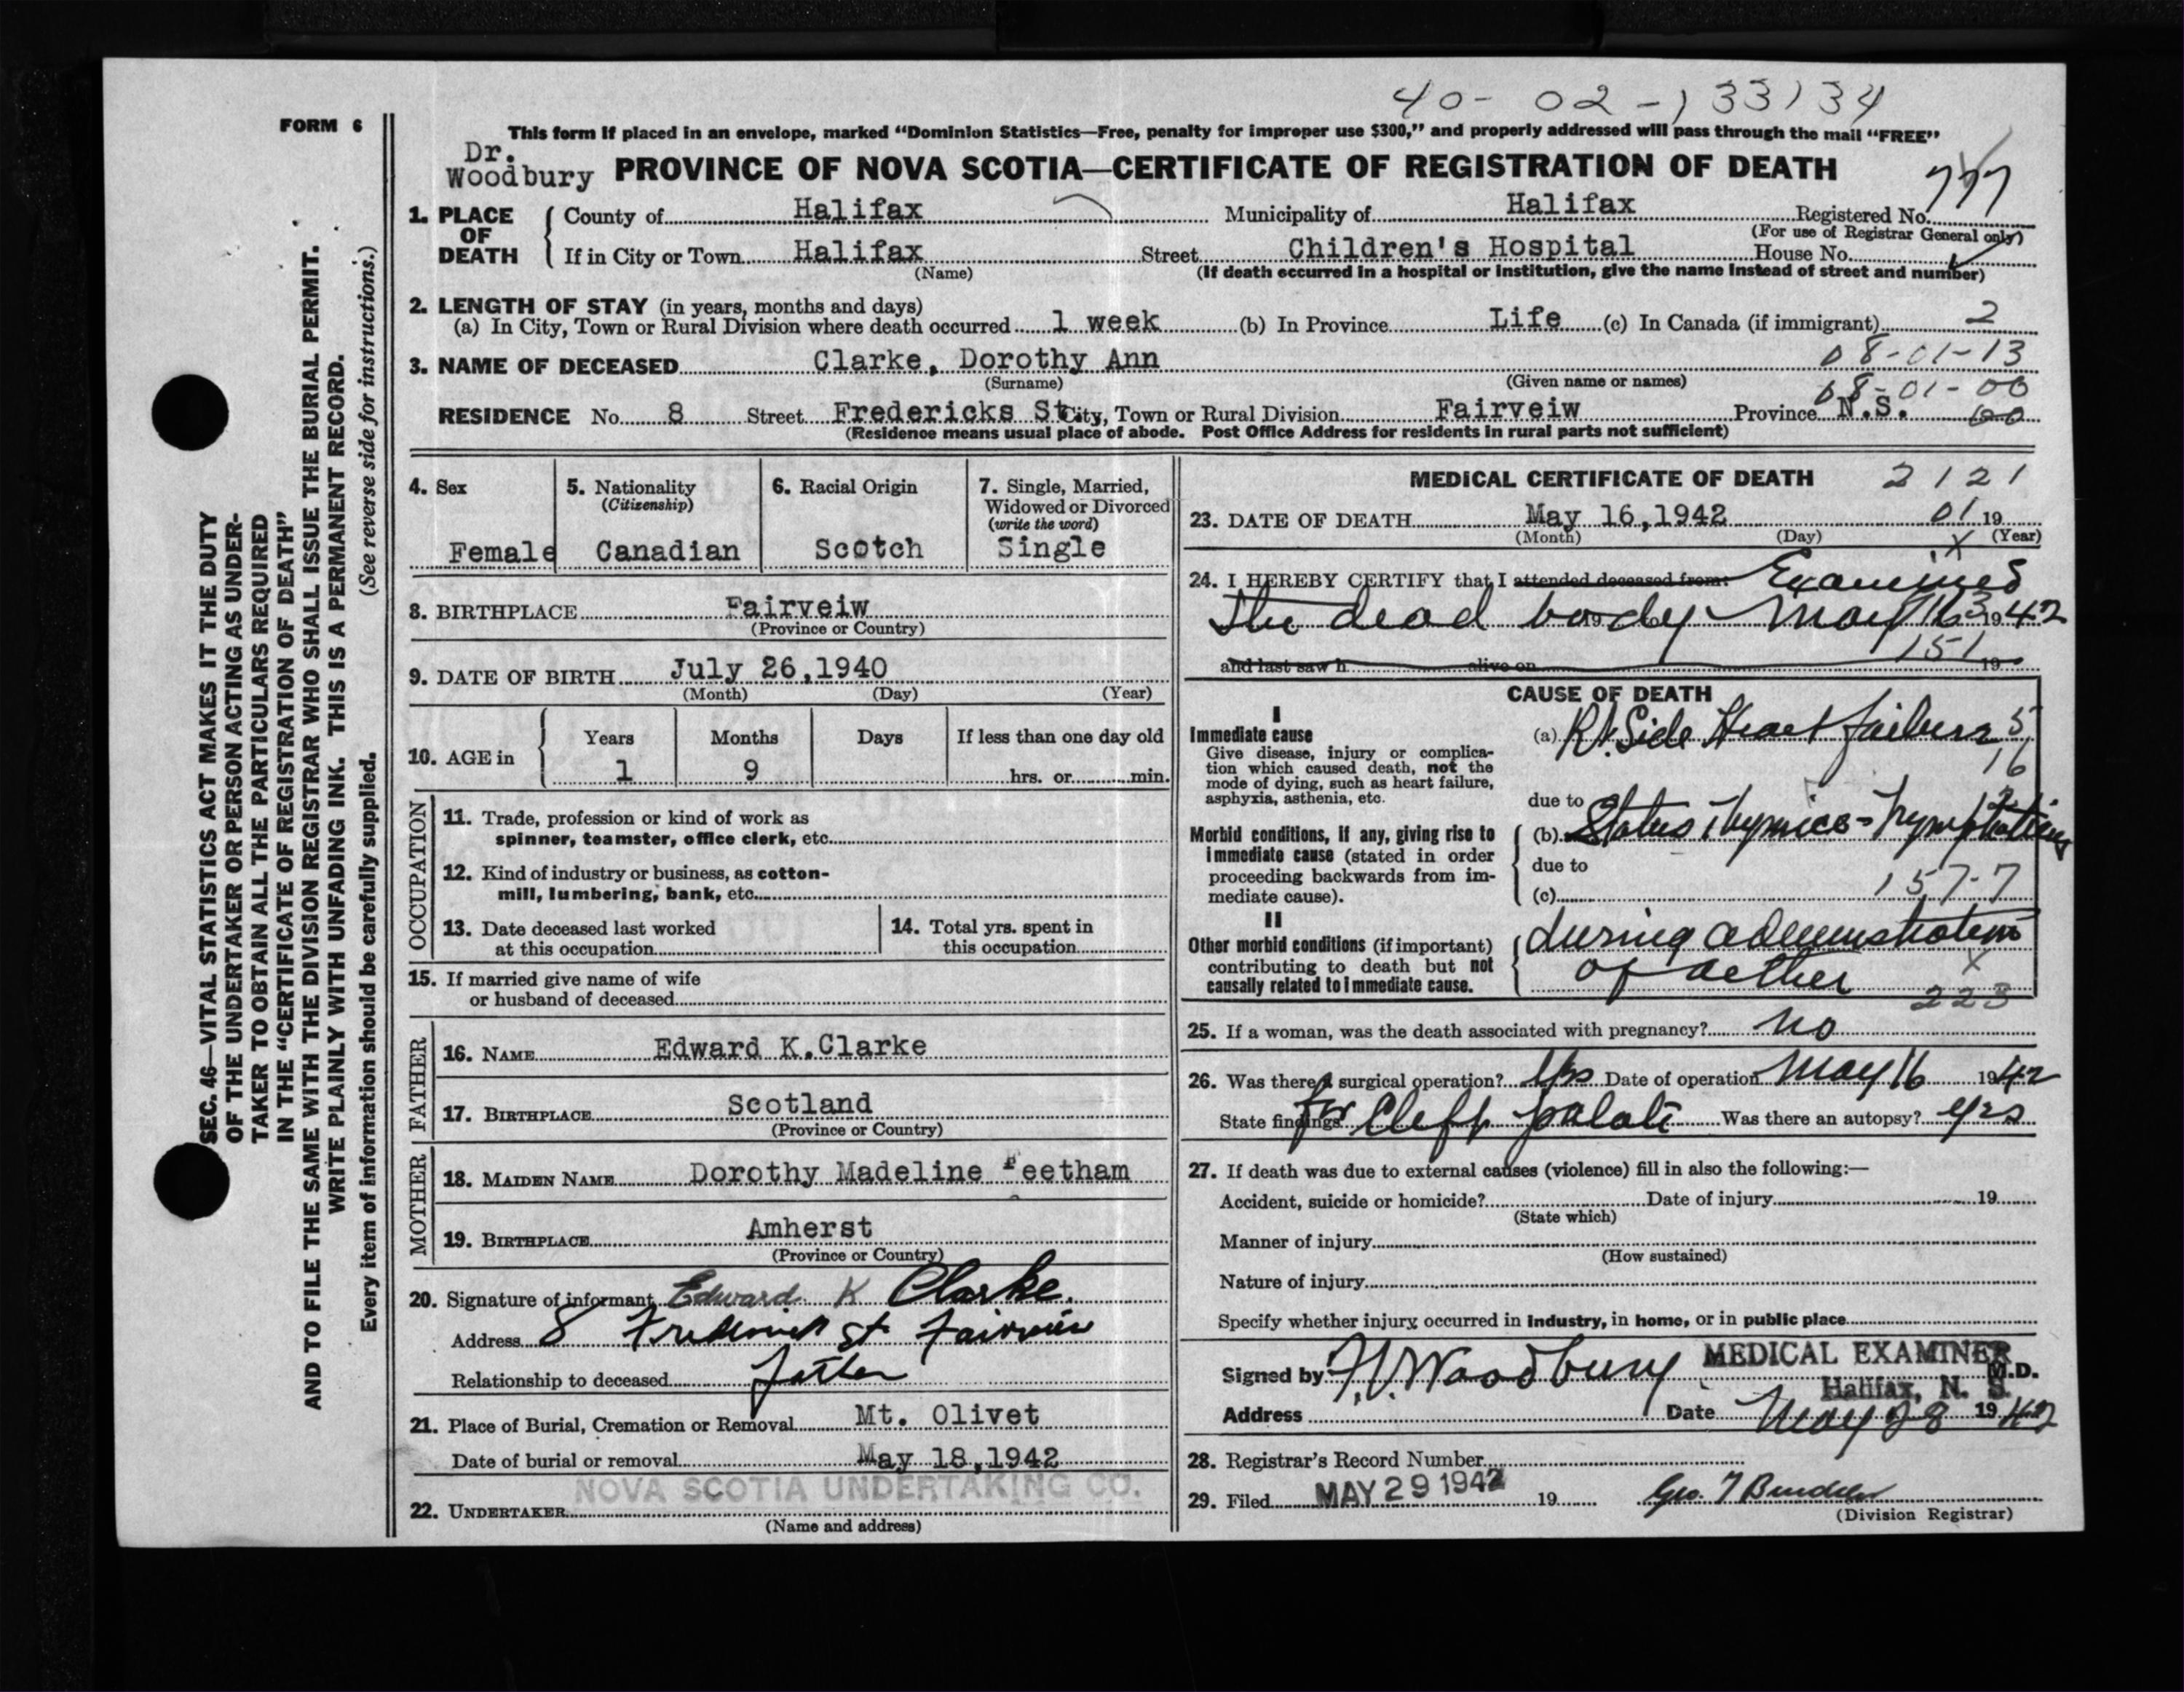 40-02-133134
FORM 6
This form if placed in an envelope, marked "Dominion Statistics—Free, penalty for improper use $300," and properly addressed will pass through the mail "FREE"
Dr.
Woodbury
PROVINCE OF NOVA SCOTIA—CERTIFICATE OF REGISTRATION OF DEATH
777
1. PLACE OF DEATH
County of Halifax Municipality of Halifax Registered No.
(For use of Registrar General only)
If in City or Town Halifax Street Children's Hospital House No.
(Name) (If death occurred in a hospital or institution, give the name instead of street and number)
2. LENGTH OF STAY (in years, months and days)
(a) In City, Town or Rural Division where death occurred 1 week (b) In Province Life (c) In Canada (if immigrant) 2
08-01-13
3. NAME OF DECEASED Clarke, Dorothy Ann
(Surname) (Given name or names)
08-01-00
RESIDENCE No. 8 Street Fredericks St. City, Town or Rural Division Fairveiw Province N.S. 60
(Residence means usual place of abode. Post Office Address for residents in rural parts not sufficient)
4. Sex
Female
5. Nationality
(Citizenship)
Canadian
6. Racial Origin
Scotch
7. Single, Married,
Widowed or Divorced
(write the word)
Single
8. BIRTHPLACE Fairveiw
(Province or Country)
9. DATE OF BIRTH July 26,1940
(Month) (Day) (Year)
10. AGE in
Years Months Days If less than one day old
1 9 hrs. or min.
OCCUPATION
11. Trade, profession or kind of work as
spinner, teamster, office clerk, etc.
12. Kind of industry or business, as cotton-
mill, lumbering, bank, etc.
13. Date deceased last worked
at this occupation
14. Total yrs. spent in
this occupation
15. If married give name of wife
or husband of deceased
FATHER
16. NAME Edward K.Clarke
17. BIRTHPLACE Scotland
(Province or Country)
MOTHER
18. MAIDEN NAME Dorothy Madeline Feetham
19. BIRTHPLACE Amherst
(Province or Country)
20. Signature of informant Edward K Clarke.
Address 8 Frederick St Fairview
Relationship to deceased father
21. Place of Burial, Cremation or Removal Mt. Olivet
Date of burial or removal May 18,1942
NOVA SCOTIA UNDERTAKING CO.
22. UNDERTAKER
(Name and address)
MEDICAL CERTIFICATE OF DEATH 2121
23. DATE OF DEATH May 16,1942 01 19
(Month) (Day) (Year)
x
24. I HEREBY CERTIFY that I attended deceased from: Examined
the dead body May 16 1942
151
and last saw h alive on 19
CAUSE OF DEATH
I
Immediate cause
Give disease, injury or complica-
tion which caused death, not the
mode of dying, such as heart failure,
asphyxia, asthenia, etc.
(a) Rt. Side Heart failure 5
16
due to
Morbid conditions, if any, giving rise to
immediate cause (stated in order
proceeding backwards from im-
mediate cause).
(b) Status Thymico-Lymphaticus
due to
(c) 157-7
II
Other morbid conditions (if important)
contributing to death but not
causally related to immediate cause.
during administration
of aether
x
223
25. If a woman, was the death associated with pregnancy? No
26. Was there a surgical operation? Yes Date of operation May 16 1942
State findings for Cleft palate Was there an autopsy? Yes
27. If death was due to external causes (violence) fill in also the following:—
Accident, suicide or homicide? Date of injury 19
(State which)
Manner of injury
(How sustained)
Nature of injury
Specify whether injury occurred in industry, in home, or in public place
Signed by Woodbury MEDICAL EXAMINER M.D.
Halifax, N. S.
Address Date May 28 1942
28. Registrar's Record Number
29. Filed MAY 29 1942 19 Geo.
(Division Registrar)
SEC. 46—VITAL STATISTICS ACT MAKES IT THE DUTY
OF THE UNDERTAKER OR PERSON ACTING AS UNDER-
TAKER TO OBTAIN ALL THE PARTICULARS REQUIRED
IN THE "CERTIFICATE OF REGISTRATION OF DEATH"
AND TO FILE THE SAME WITH THE DIVISION REGISTRAR WHO SHALL ISSUE THE BURIAL PERMIT.
WRITE PLAINLY WITH UNFADING INK. THIS IS A PERMANENT RECORD.
Every item of information should be carefully supplied. (See reverse side for instructions.)